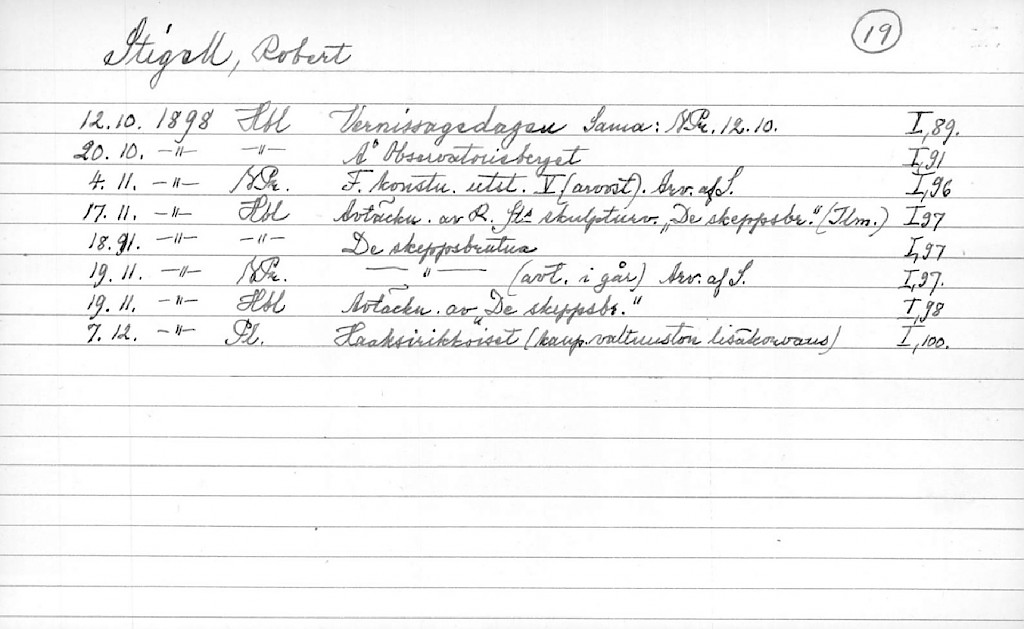 Stigell, Robert 19
12.10. 1898 Hbl Vernissagedagen Sama: NPr. 12.10. I,89.
20.10. –"– –"– Å Observatorieberget I,91
4.11. –"– NPr. F. konstn. utst. V (arvost). Arv. af S. I,96
17.11. –"– Hbl Avtäckn. av R. St:s skulpturv. „De skeppsbr." (Ilm.) I,97
18.11. –"– –"– De skeppsbrutna I,97
19.11. –"– NPr. –– " –– (avt. i går) Arv. af S. I,97.
19.11. –"– Hbl Avtäckn. av „De skeppsbr." I,98
7.12. –"– Pl. Haaksirikkoiset (kaup.valtuuston lisäkorvaus) I,100.